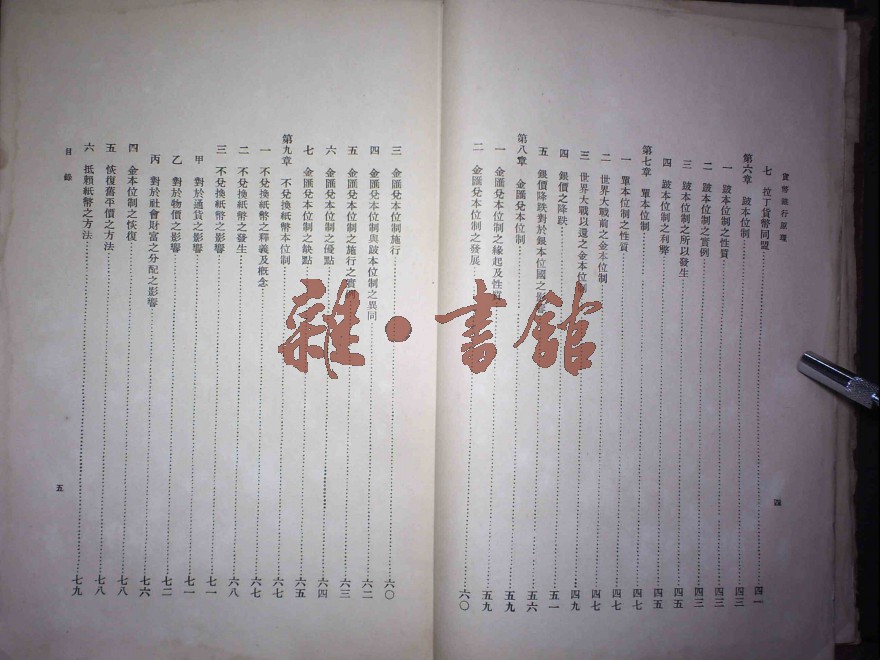 貨幣銀行原理
七 拉丁貨幣同盟 四一
第六章 跛本位制 四三
一 跛本位制之性質 四三
二 跛本位制之實例 四三
三 跛本位制之所以發生 四五
四 跛本位制之利弊 四五
第七章 單本位制 四七
一 單本位制之性質 四七
二 世界大戰前之金本位制 四七
三 世界大戰以還之金本位制 四九
四 銀價之降跌 五一
五 銀價降跌對於銀本位國之影響 五六
第八章 金匯兌本位制 五九
一 金匯兌本位制之緣起及性質 五九
二 金匯兌本位制之發展 六〇
四
三 金匯兌本位制施行 六〇
四 金匯兌本位制與跛本位制之異同 六二
五 金匯兌本位制之施行之實例 六三
六 金匯兌本位制之優點 六四
七 金匯兌本位制之缺點 六五
第九章 不兌換紙幣本位制 六七
一 不兌換紙幣之釋義及概念 六七
二 不兌換紙幣之發生 六八
三 不兌換紙幣之影響 七一
甲 對於通貨之影響 七一
乙 對於物價之影響 七二
丙 對於社會財富之分配之影響 七六
四 金本位制之恢復 七八
五 恢復舊平價之方法 七八
六 抵賴紙幣之方法 七九
目錄
五
雜·書館